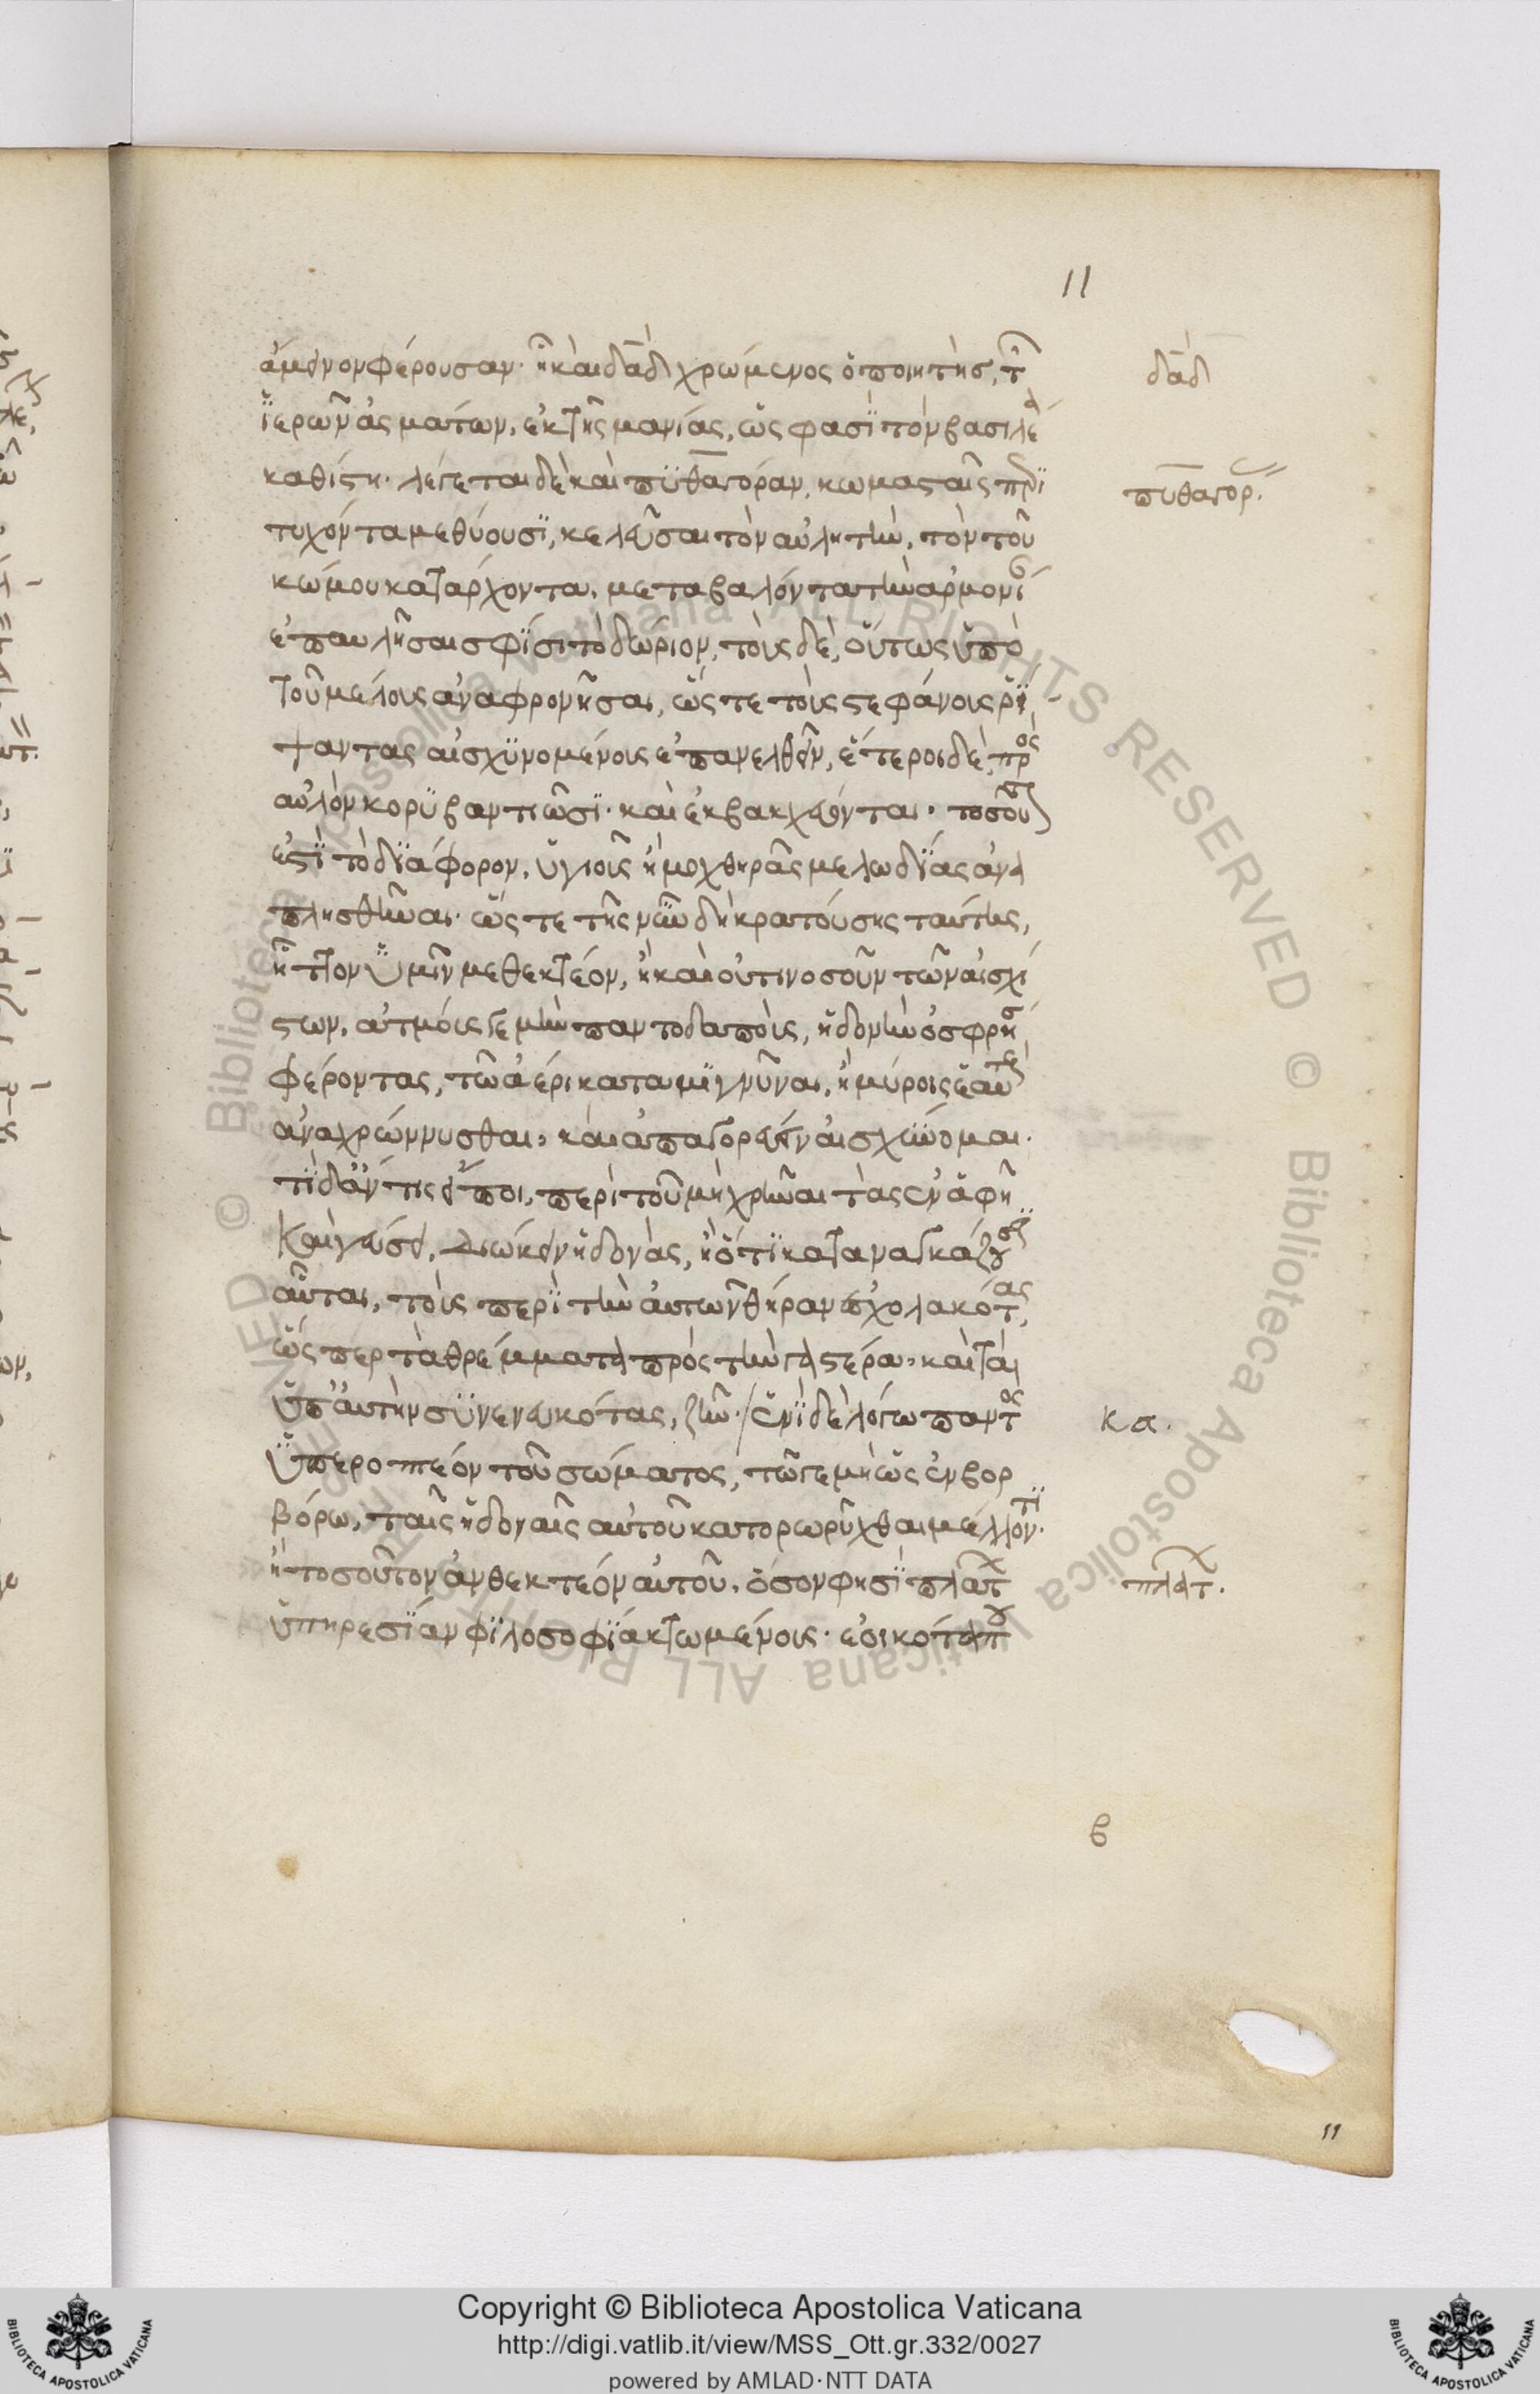 11
ἄμεινον φέρουσαν· ἧ καὶ δᾱδ χρώμενος ὁ ποιητὴς, τῶν
ἱερῶν ἀσμάτων, ἐκ τῆς μανίας, ὥς φασὶ τὸν βασιλέα
καθίστη· λέγεται δὲ καὶ πυθαγόραν, κωμασταῖς περι
τυχόντα μεθύουσι, κελεῦσαι τὸν αὐλητὴν, τὸν τοῦ
κώμου κατάρχοντα, μεταβαλόντα τὴν ἁρμονί
ἐπαυλῆσαι σφίσι τὸ δώριον, τοὺς δὲ, οὕτως ὑπὸ
τοῦ μέλους ἀναφρονῆσαι, ὥστε τοὺς στεφάνους ῥί
ψαντας αἰσχυνομένους ἐπανελθεῖν, ἕτεροι δὲ, πρὸς
αὐλὸν κορυβαντιῶσι· καὶ ἐκβακχεύονται· τοσοῦτόν
ἐστι τὸ διάφορον, ὑγιοῦς ἢ μοχθηρᾶς μελωδίας ἀνα
πλησθῆναι· ὥστε τῆς νῦν δὴ κρατούσης ταύτης,
ἧττον ὑμῖν μεθεκτέον, ἢ καὶ οὑτινοσοῦν τῶν αἰσχί
στων, ἀτμούς γε μὴν παντοδαποὺς, ἡδονὴν ὀσφρήσ
φέροντας, τῶ ἀέρι καταμιγνῦναι, ἢ μύροις ἑαυτοὺς
ἀναχρώννυσθαι, καὶ ἀπαγορεύειν αἰσχύνομαι·
τί δ' ἄν τις εἴποι, περὶ τοῦ μὴ χρῆναι τὰς ἐν ἁφῇ
Καὶ γεύσει, διώκειν ἡδονὰς, ἢ ὅτι καταναγκάζουσιν
αὗται, τοὺς περὶ τὴν αὐτῶν θήραν ἐσχολακότας,
ὥσπερ τὰ θρέμματα πρὸς τὴν γαστέρα, καὶ τὰ
ὑπ' αὐτὴν συννενευκότας, ζῆν· / ἑνὶ δὲ λόγω παντὸς
ὑπεροπτέον τοῦ σώματος, τῶ γε μὴ ὡς ἐν βορ
βόρω, ταῖς ἡδοναῖς αὐτοῦ κατορωρύχθαι μέλλοντι·
ἢ τοσοῦτον ἀνθεκτέον αὐτοῦ, ὅσον φησὶ πλάτ
ὑπηρεσίαν φιλοσοφία κτωμένους· ἐοικότα που
δᾱδ
πυθαγορ.
κα.
πλάτ.
β
11
Copyright © Biblioteca Apostolica Vaticana
http://digi.vatlib.it/view/MSS_Ott.gr.332/0027
powered by AMLAD·NTT DATA